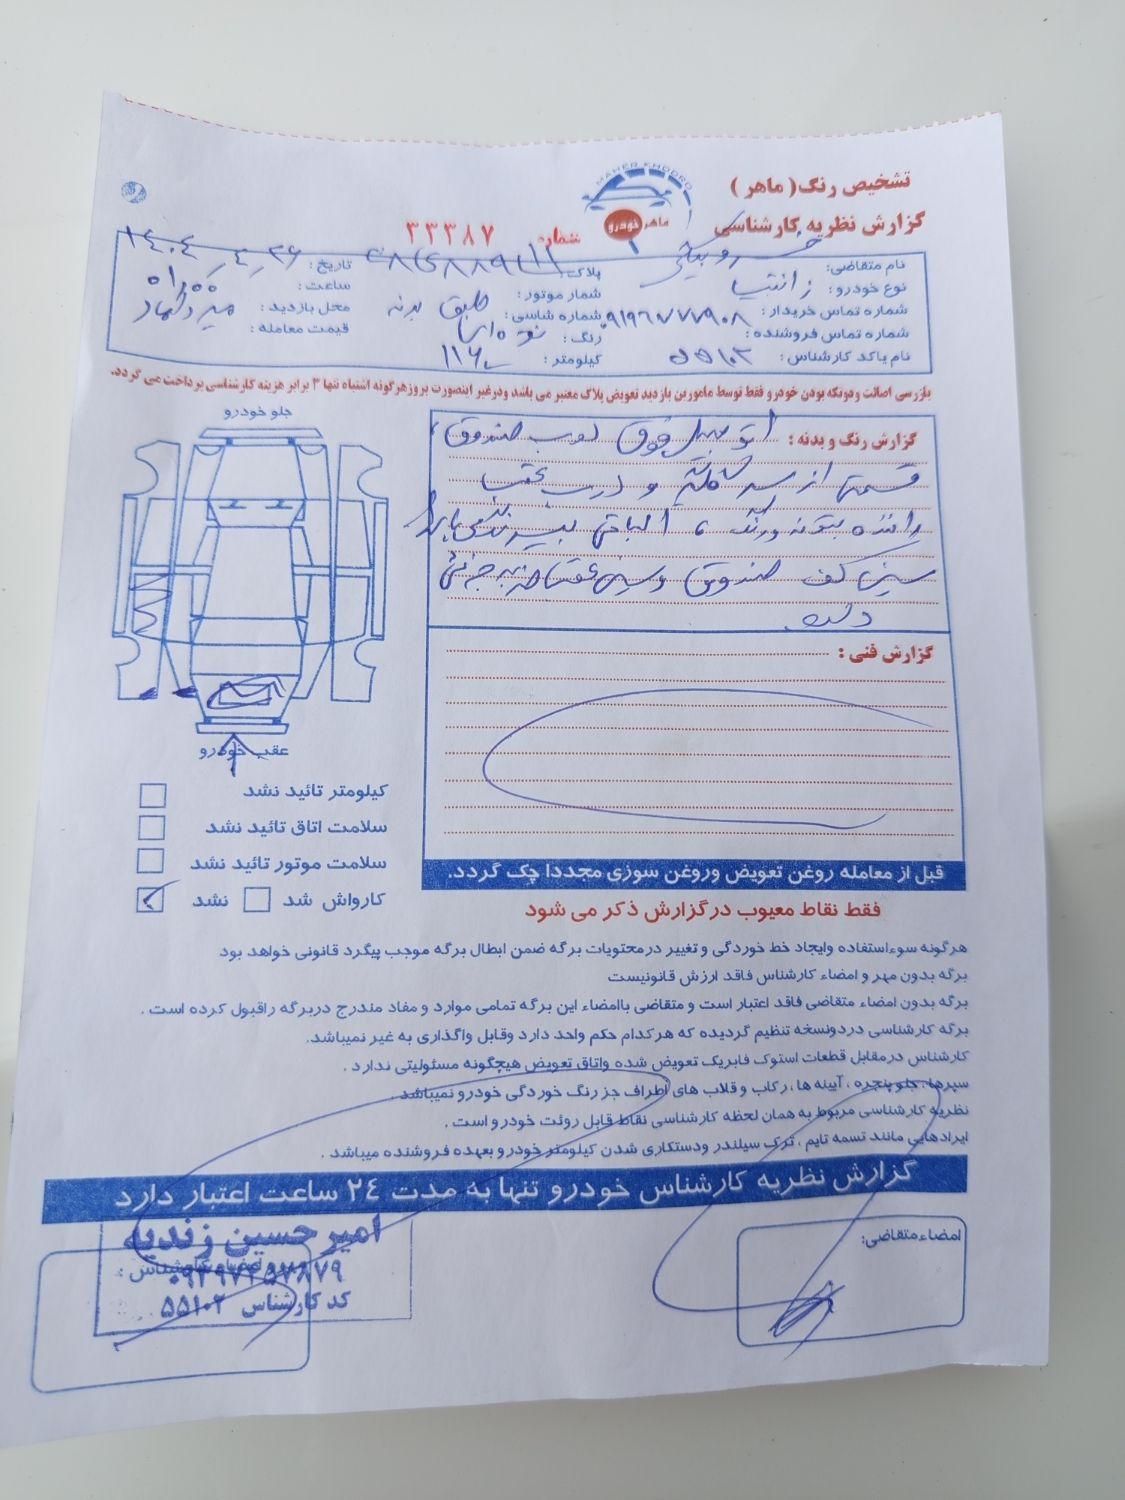 MAHER KHODRO
ماهر خودرو
تشخیص رنگ ( ماهر )
گزارش نظریه کارشناسی
شماره ۳۳۳۸۷
نام متقاضی:
پلاک:
تاریخ: ۱۴۰۴_۴_۲۶
نوع خودرو: زانتیا
شمار موتور:
ساعت:
شماره تماس خریدار: ۰۹۱۹۶۷۷۷۹۰۸
شماره شاسی: طبق بدنه
محل بازدید:
شماره تماس فروشنده:
رنگ: نقره ای
قیمت معامله:
نام یا کد کارشناس: ۵۵۱۰۲
کیلومتر:
بازرسی اصالت ودوتکه بودن خودرو فقط توسط مامورین بازدید تعویض پلاک معتبر می باشد ودرغیر اینصورت بروزهرگونه اشتباه تنها ۳ برابر هزینه کارشناسی پرداخت می گردد.
جلو خودرو
گزارش رنگ و بدنه : اتومبیل فوق درب صندوق
قسمتی از سر گلگیر و درب عقب
راننده بتونه ورنگ ، الباقی
سینی کف صندوق وسینی عقب ضربه جزئی
گزارش فنی :
عقب خودرو
کیلومتر تائید نشد
سلامت اتاق تائید نشد
سلامت موتور تائید نشد
کارواش شد نشد
قبل از معامله روغن تعویض وروغن سوزی مجددا چک گردد.
فقط نقاط معیوب درگزارش ذکر می شود
هرگونه سوءاستفاده وایجاد خط خوردگی و تغییر درمحتویات برگه ضمن ابطال برگه موجب پیگرد قانونی خواهد بود
برگه بدون مهر و امضاء کارشناس فاقد ارزش قانونیست
برگه بدون امضاء متقاضی فاقد اعتبار است و متقاضی باامضاء این برگه تمامی موارد و مفاد مندرج دربرگه راقبول کرده است .
برگه کارشناسی دردونسخه تنظیم گردیده که هرکدام حکم واحد دارد وقابل واگذاری به غیر نمیباشد.
کارشناس درمقابل قطعات استوک فابریک تعویض شده واتاق تعویض هیچگونه مسئولیتی ندارد .
سپرها ، جلو پنجره ، آیینه ها ، رکاب و قلاب های اطراف جز رنگ خوردگی خودرو نمیباشد .
نظریه کارشناسی مربوط به همان لحظه کارشناسی نقاط قابل روئت خودرو است .
ایرادهایی مانند تسمه تایم ، ترک سیلندر ودستکاری شدن کیلومتر خودرو بعهده فروشنده میباشد .
گزارش نظریه کارشناس خودرو تنها به مدت ۲۴ ساعت اعتبار دارد
امضاء متقاضی:
امیرحسین زندیه
کد کارشناس ۵۵۱۰۲